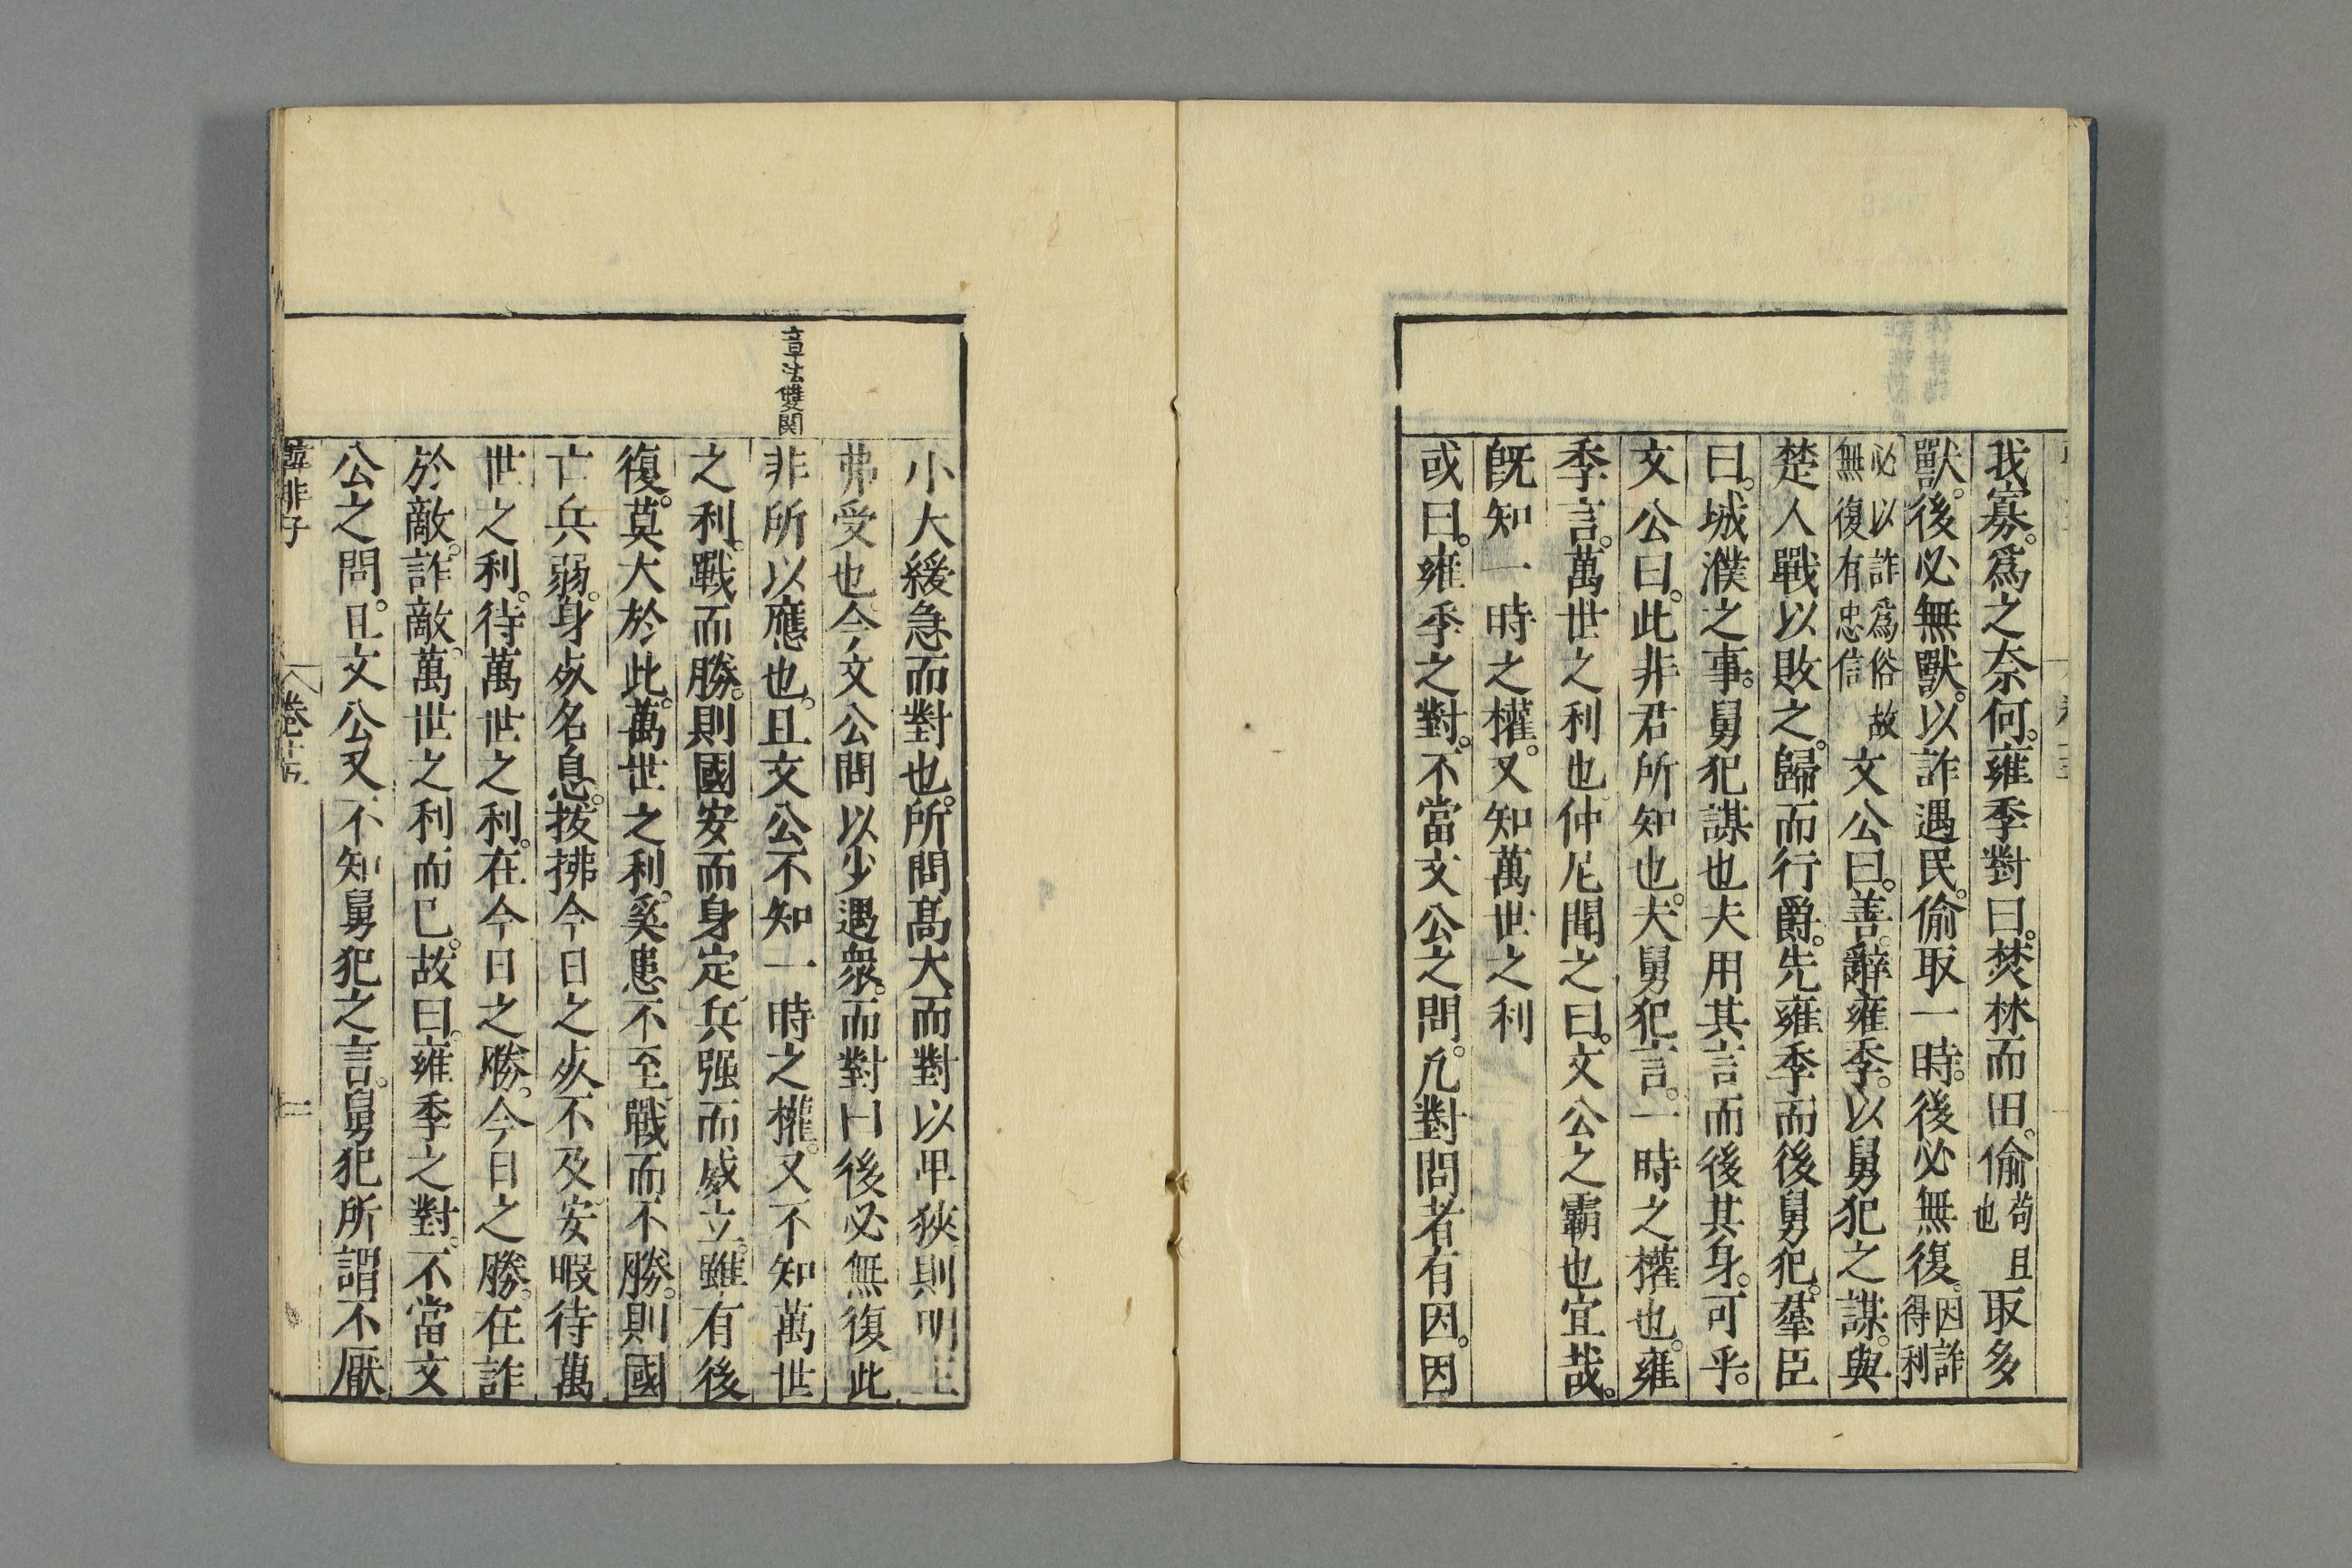 我寡爲之奈何。雍季對曰。焚林而田。偷苟且也取多
獸。後必無獸。以詐遇民。偷取一時。後必無復。因詐得利
必以詐爲俗故無復有忠信文公曰。善。辭雍季。以舅犯之謀。與
楚人戰以敗之。歸而行爵。先雍季而後舅犯。羣臣
曰。城濮之事。舅犯謀也夫用其言而後其身。可乎。
文公曰。此非君所知也。夫舅犯言。一時之權也。雍
季言。萬世之利也仲尼聞之曰。文公之霸也宜哉。
旣知一時之權。又知萬世之利
或曰。雍季之對。不當文公之問。凡對問者有因。因
小大緩急而對也。所問高大而對以卑狹則明主
弗受也今文公問以少遇衆。而對曰後必無復此
章法雙関
非所以應也。且文公不知一時之權。又不知萬世
之利。戰而勝。則國安而身定兵强而威立。雖有後
復。莫大於此。萬世之利。奚患不至戰而不勝。則國
亡兵弱。身歿名息。拔拂今日之歿不及安暇待萬
世之利。待萬世之利。在今日之勝。今日之勝。在詐
於敵。詐敵。萬世之利而已。故曰。雍季之對。不當文
公之問。且文公又不知舅犯之言。舅犯所謂不厭
韓非子 卷十五 二